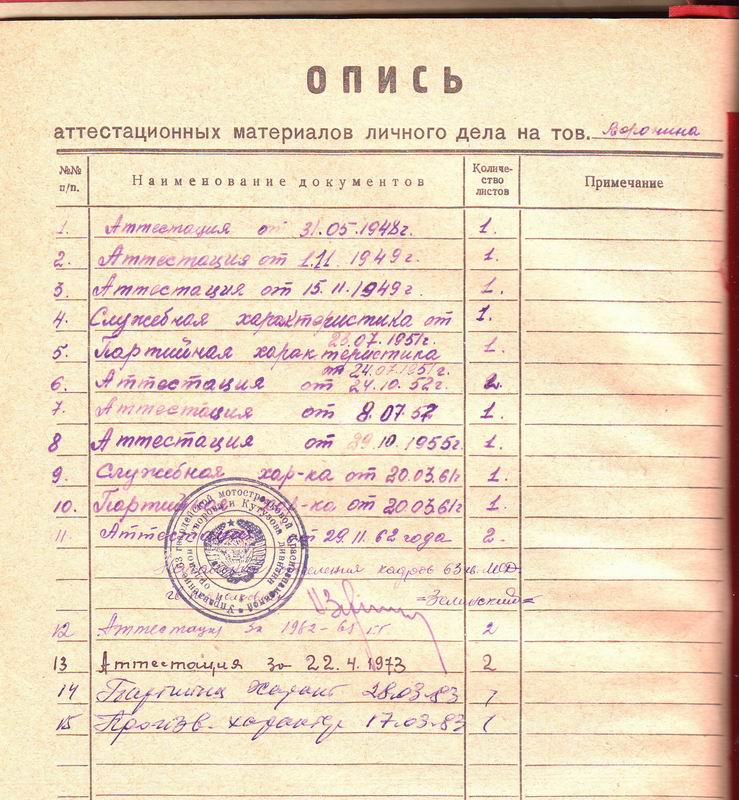 ОПИСЬ
аттестационных материалов личного дела на тов. Воронина
№№ п/п. Наименование документов Количе-ство листов Примечание
1. Аттестация от 31.05.1948г. 1.
2. Аттестация от 1.11.1949г. 1.
3. Аттестация от 15.11.1949г. 1.
4. Служебная характеристика от 1.
23.07.1951г.
5. Партийная характеристика 1.
от 24.07.1951г.
6. Аттестация от 24.10.52г. 2.
7. Аттестация от 8.07.57 1.
8 Аттестация от 29.10.1955г. 1.
9. Служебная хар-ка от 20.03.61г 1.
10. Партийная хар-ка от 20.03.61г 1.
11. Аттестация от 29.11.62 года 2.
кадров 63 гв. МСД
=Зелинский=
12 Аттестация за 1962-65 гг 2
13 Аттестация за 22.4.1973 2
14 Партийн характ 28.03.83 1
15 Произв. характер 17.03.83 1